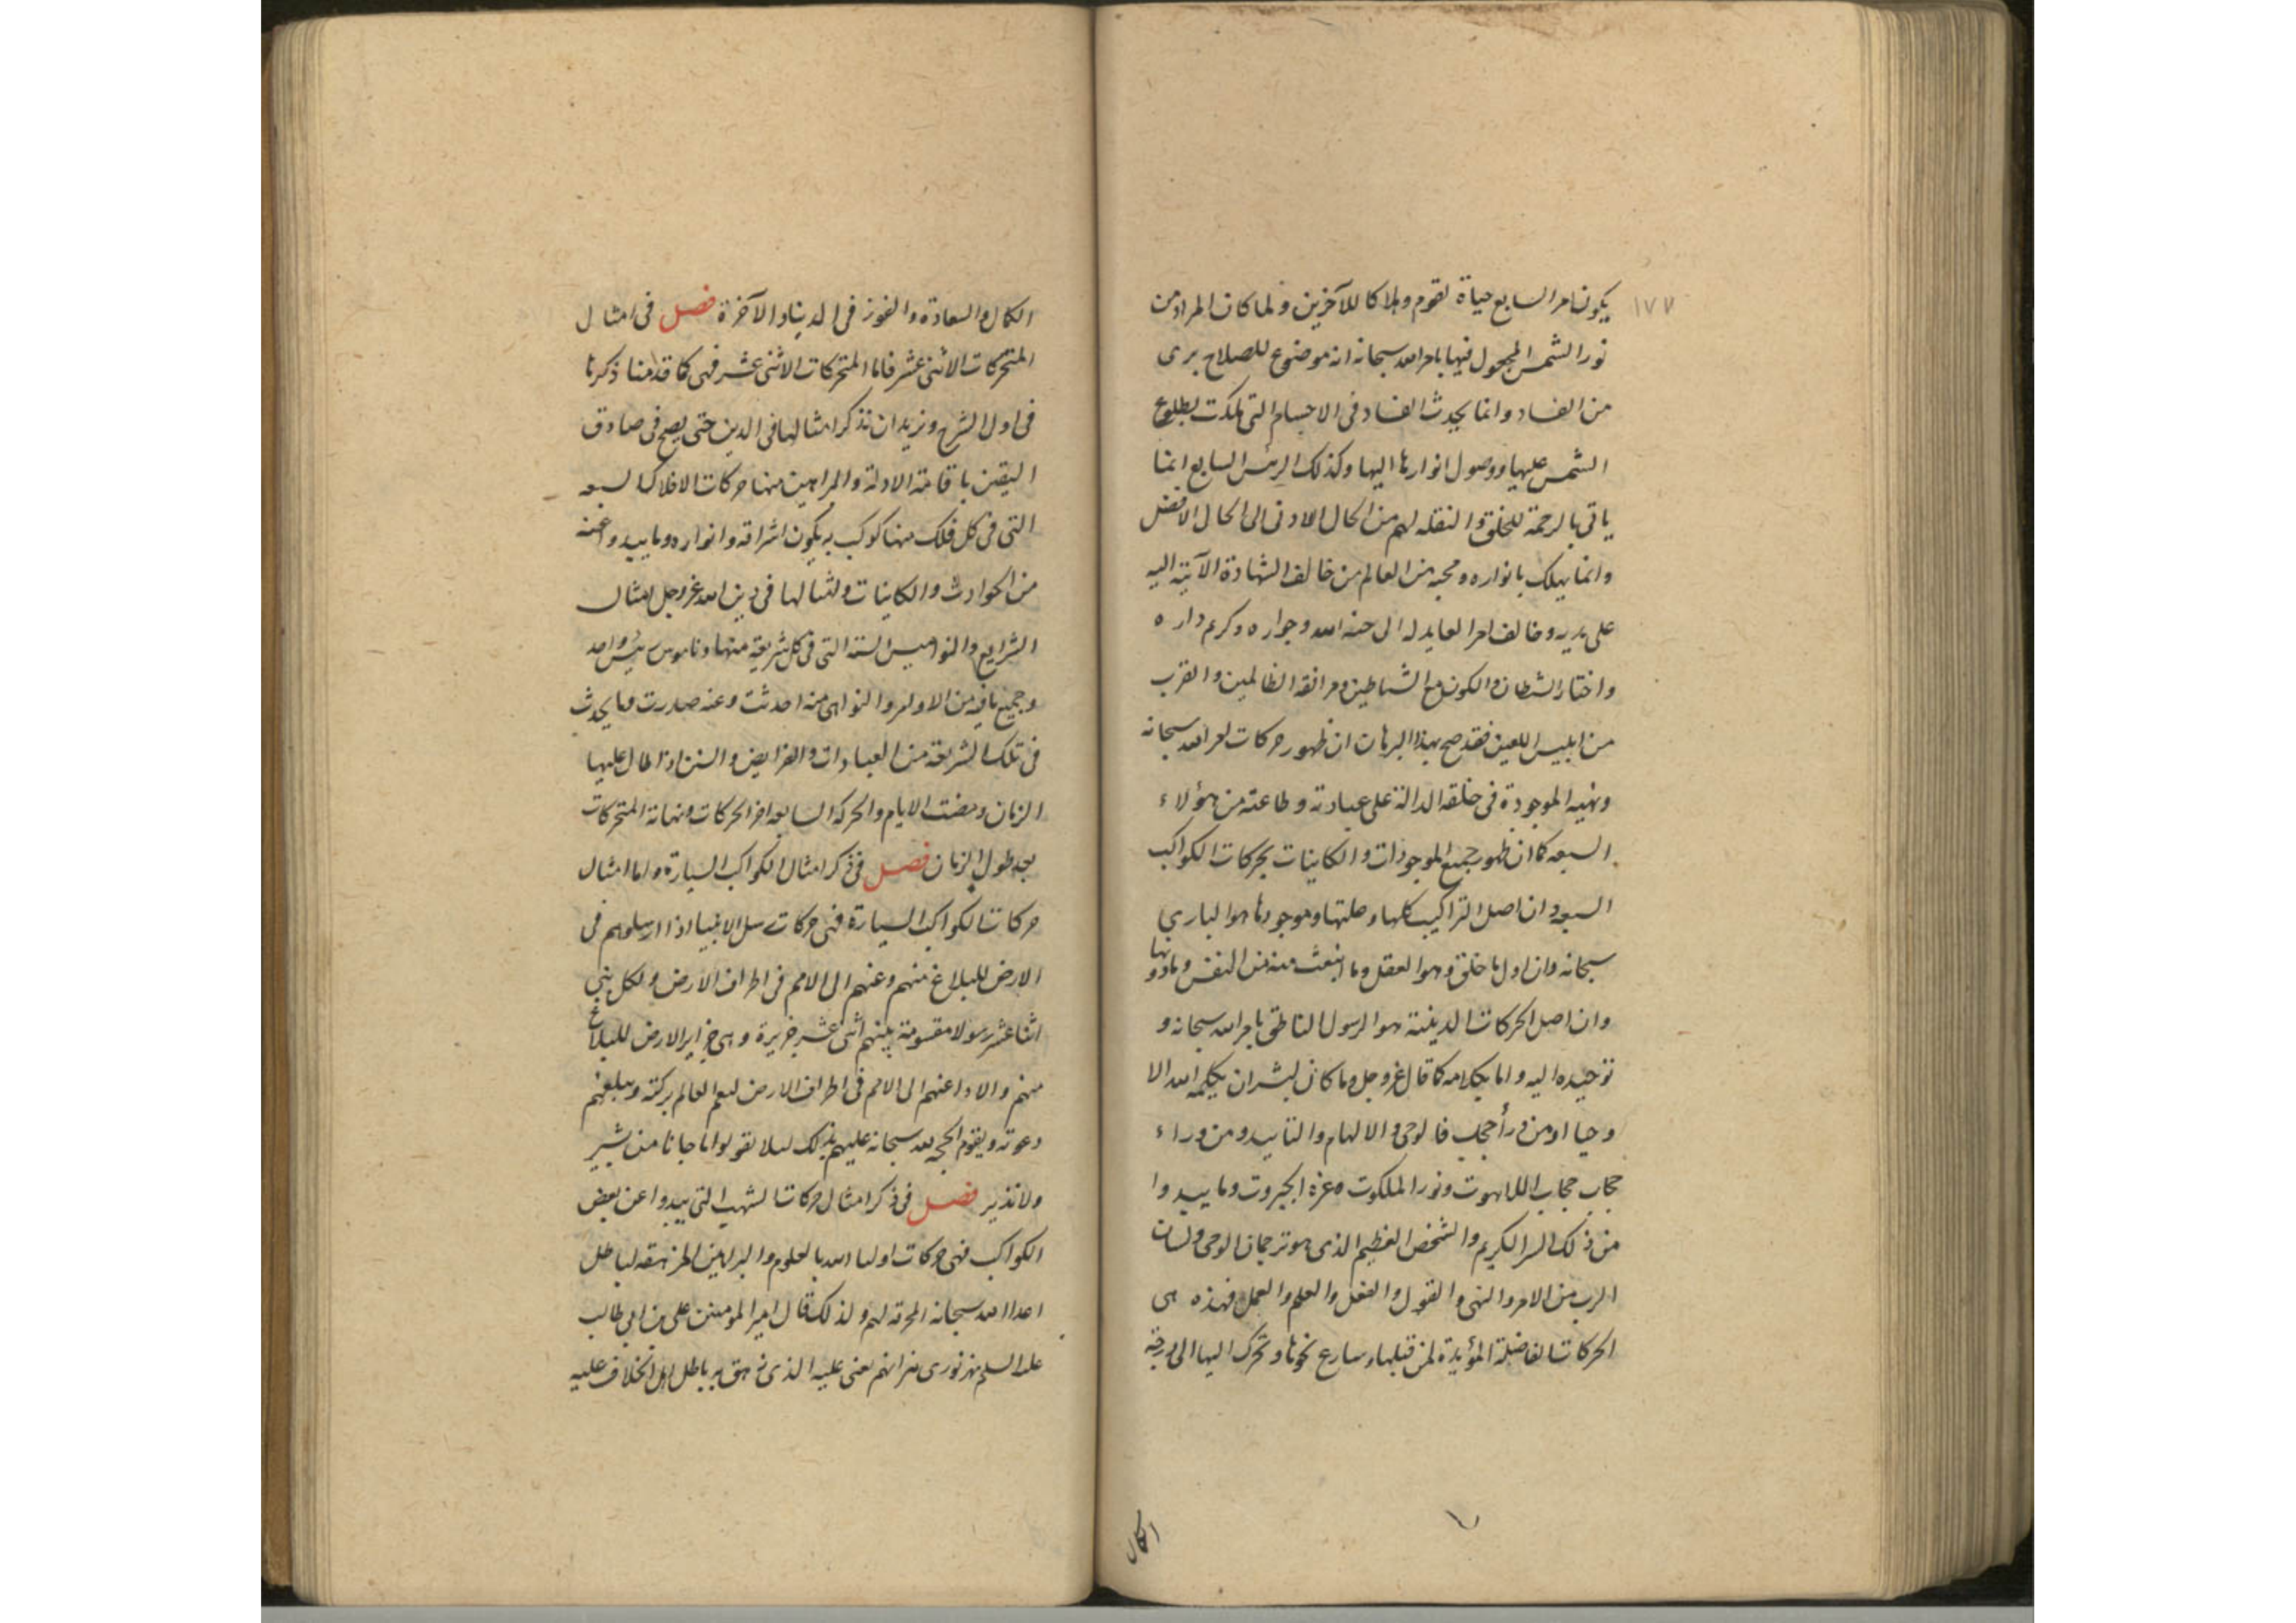 ١٧٧
يكون امر السابع حياة لقوم وهلاكا للآخرين ولما كان المراد من
نور الشمس المجعول فيها بامر الله سبحانه انه موضوع للصلاح برى
من الفساد وانما يحدث الفساد فى الاجسام التى هلكت بطلوع
الشمس عليها ووصول انوارها اليها وكذلك الرئيس السابع انما
ياتى بالرحمة للخلق والنقله لهم من الحال الادنى الى الحال الافضل
وانما يهلك بانواره ومحبه من العالم من خالف الشهادة الآتية اليه
على يديه وخالف امر العايد له الى جنة الله وجواره وكريم داره
واختار الشيطان والكون مع الشياطين ومرافقه الظالمين والقرب
من ابليس اللعين فقد صح بهذا البرهان ان ظهور حركات امر الله سبحانه
ونهيه الموجودة فى خلقه الدالة على عبادته وطاعته من هؤلاء
السبعه كما ان ظهور جميع الموجودات والكاينات بحركات الكواكب
السبعه وان اصل التراكيب كلها وعلتها وموجودها هو البارى
سبحانه وان اول ما خلق وهو العقل وما انبعث منه من النفس وما دونها
وان اصل الحركات الدينية هو الرسول الناطق بامر الله سبحانه و
توحيده اليه واما بكلامه كما قال عز وجل وما كان لبشر ان يكلمه الله الا
وحيا او من ورآ حجاب فالوحى والالهام والتاييد ومن وراء
حجاب حجاب اللاهوت ونور الملكوت وعزة الجبروت وما يبدوا
من ذلك السر الكريم والشخص العظيم الذى هو ترجمان الوحى ولسان
الرب من الامر والنهى والقول والفعل والعلم والعمل فهذه هى
الحركات الفاضلة المؤيدة لمن قبلها وسارع نحوها وتحرك اليها الى درجة
الكمال
الكمال والسعادة والفوز فى الدنيا والآخرة فصل فى امثال
المتحركات الاثنى عشر فاما المتحركات الاثنى عشر فهى كما قدمنا ذكرها
فى اول الشرح ونريد ان نذكر امثالها فى الدين حتى يصح فى صادق
اليقين باقامة الادلة والبراهين منها حركات الافلاك السبعه
التى فى كل فلك منها كوكب به يكون اشراقه وانواره وما يبدوا عنه
من الحوادث والكاينات وامثالها فى دين الله عز وجل امثال
الشرايع والنواميس الستة التى فى كل شريعة منها وناموس رئيس واحد
وجميع ما فيه من الاوامر والنواهى منه احدثت وعنه صدرت وما يحدث
فى تلك الشريعة من العبادات والفرايض والسنن اذا طال عليها
الزمان ومضت الايام والحركة السابعه اخر الحركات ونهاية المتحركات
بعد طول الزمان فصل فى ذكر امثال الكواكب السيارة واما امثال
حركات الكواكب السيارة فهى حركات رسل الانبياء اذا ارسلوهم فى
الارض للبلاغ منهم وعنهم الى الامم فى اطراف الارض ولكل نبى
اثنا عشر رسولا مقسومة بينهم اثنى عشر جزيرة وهى جزاير الارض للبلاغ
منهم والاداء عنهم الى الامم فى اطراف الارض ليعم العالم بركته ويبلغهم
دعوته ويقوم الحجه لله سبحانه عليهم بذلك ليلا يقولوا ما جانا من بشير
ولا نذير فصل فى ذكر امثال حركات الشهب التى يبدوا عن بعض
الكواكب فهى حركات اولياء الله بالعلوم والبراهين المزهقه لباطل
اعداء الله سبحانه المحرقه لهم ولذلك قال امير المؤمنين على بن ابى طالب
عليه السلم نورى يعنى عليه الذى زهق به باطل اهل الخلاف عليه